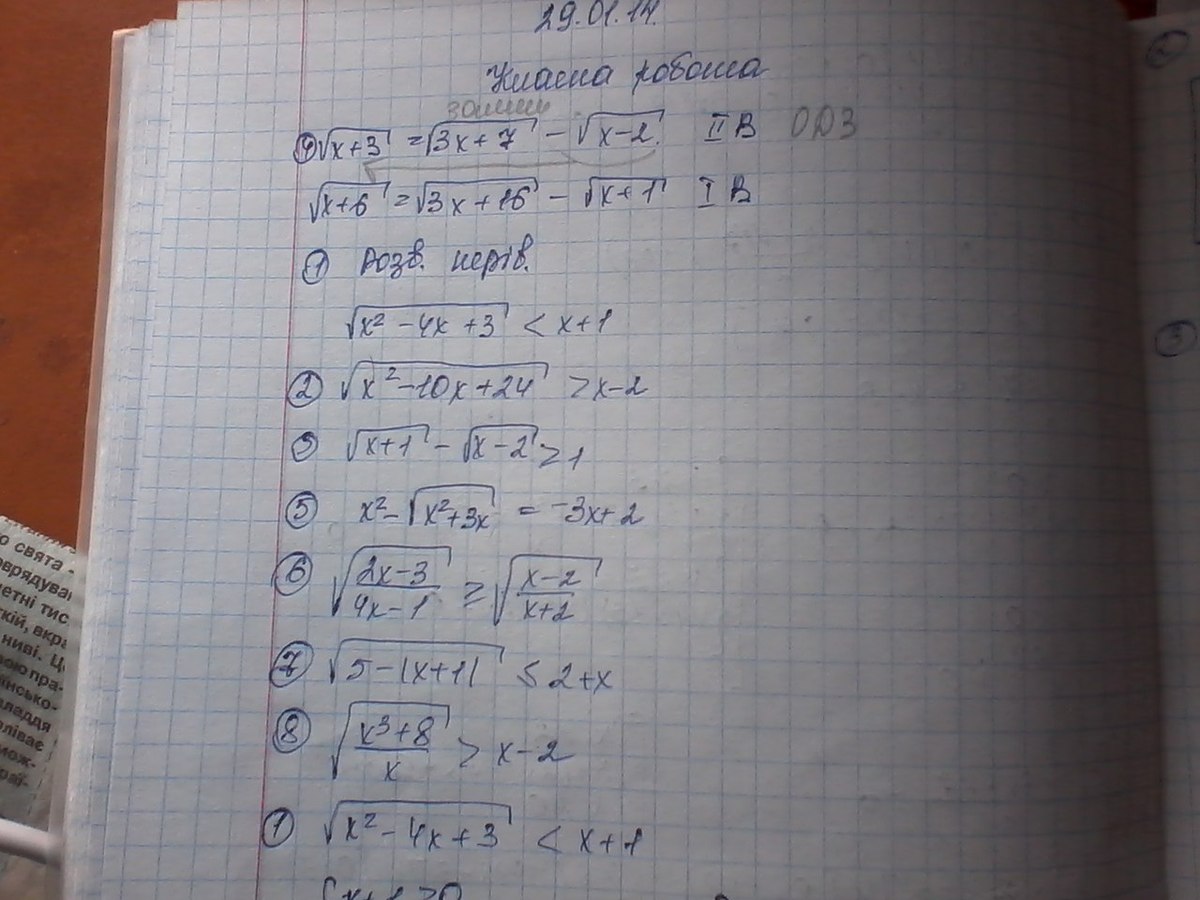 29.01.14.
Класна робота
залиш
④ √(x+3) = √(3x+7) - √(x-2) II В ОДЗ
√(x+6) = √(3x+16) - √(x+1) I В
① Розв. нерів.
√(x² - 4x + 3) < x+1
② √(x² - 10x + 24) > x-2
③ √(x+1) - √(x-2) ≥ 1
⑤ x² - √(x²+3x) = -3x+2
⑥ √((2x-3)/(4x-1)) ≥ √((x-2)/(x+2))
⑦ √(5-|x+1|) ≤ 2+x
⑧ √((x³+8)/x) > x-2
① √(x² - 4x + 3) < x+1
о свята -
тис
ткій, вкра
ниві. Ц
рою пра-
інсько-
ладдя
оліває
мож-